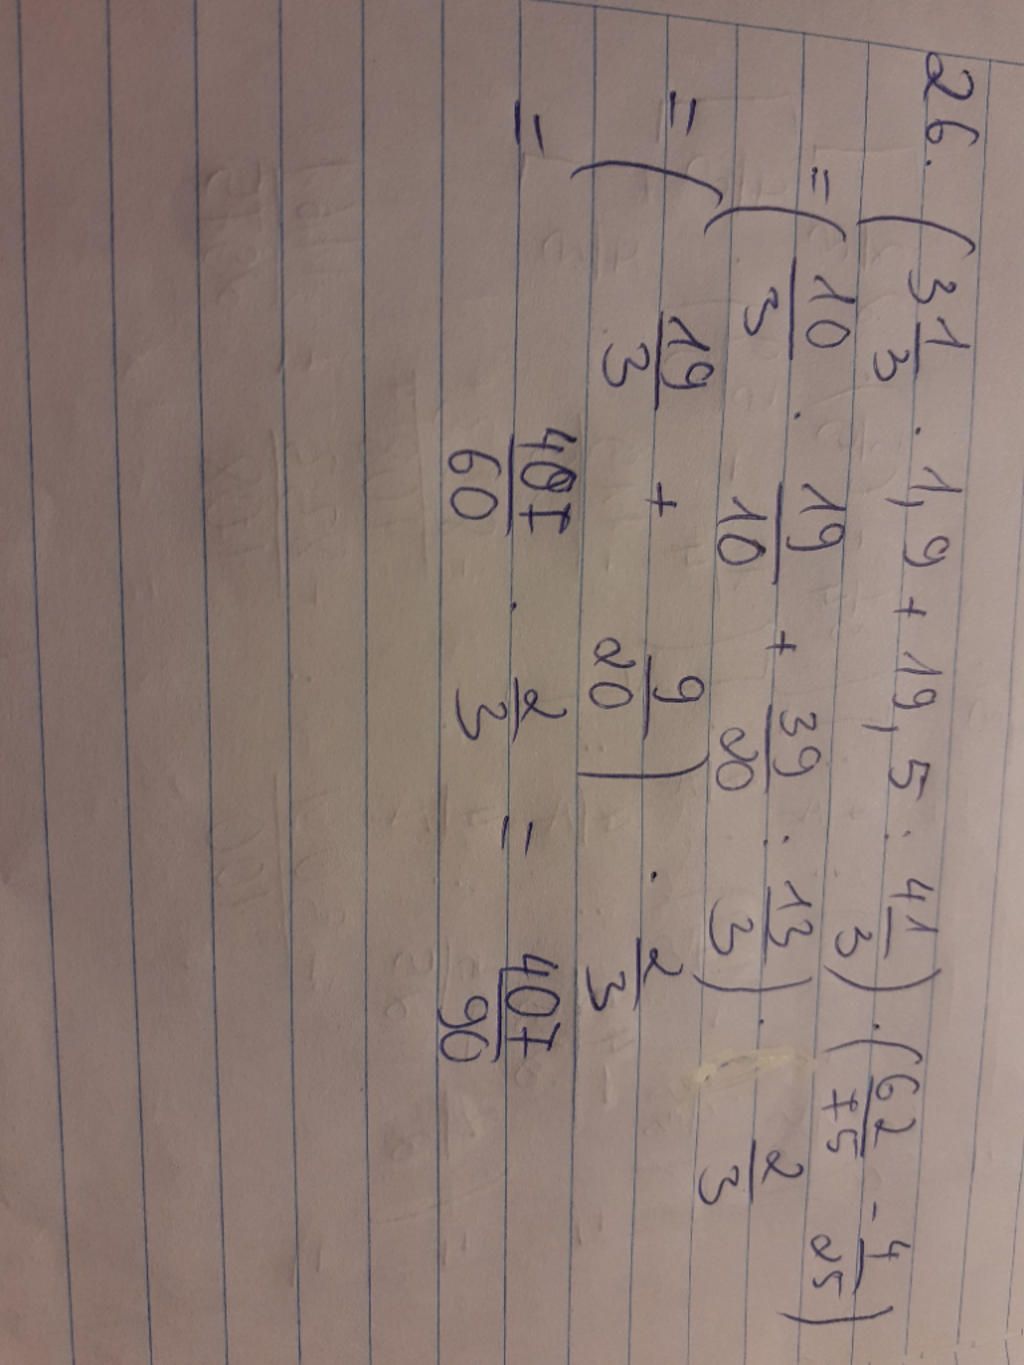 26. (3 1/3 · 1,9 + 19,5 : 4 1/3) · (62/75 - 4/25)
= (10/3 · 19/10 + 39/20 · 13/3) · 2/3
= (19/3 + 9/20) · 2/3
= 407/60 · 2/3 = 407/90